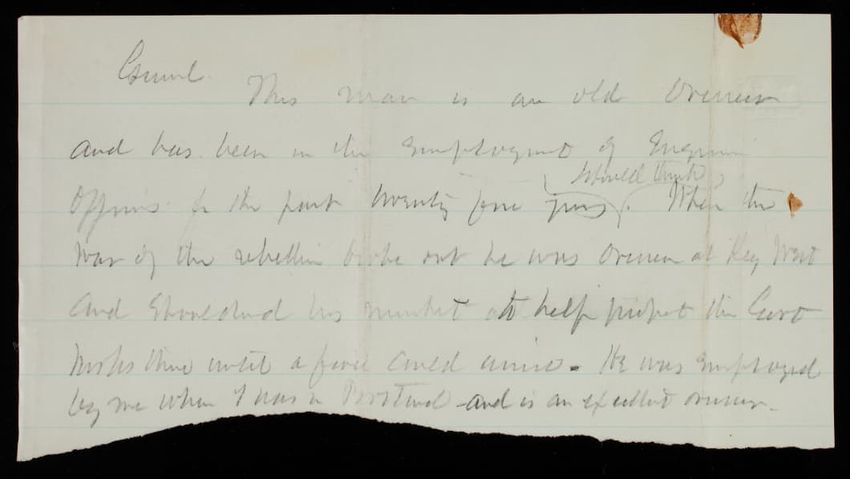 Genl.
This man is an old Overseer
and has been in the employment of Engineer
should think
Officers for the past twenty five years. When the
war of the rebellion broke out he was Overseer at Key West
and shouldered his musket to help protect the Govt
Works there until a force could arrive. He was employed
by me when I was in Portland and is an excellent overseer.